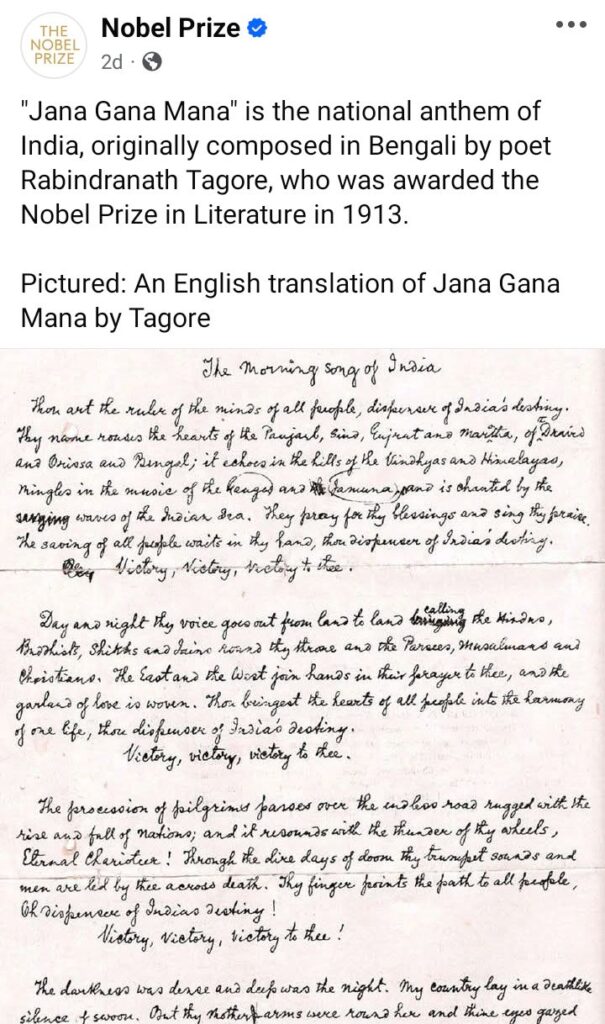 THE
NOBEL
PRIZE
Nobel Prize
2d ·
"Jana Gana Mana" is the national anthem of
India, originally composed in Bengali by poet
Rabindranath Tagore, who was awarded the
Nobel Prize in Literature in 1913.
Pictured: An English translation of Jana Gana
Mana by Tagore
The Morning song of India
Thou art the ruler of the minds of all people, dispenser of India's destiny.
Thy name rouses the hearts of the Panjaub, Sind, Gujrat and Maratha, of Dravid
and Orissa and Bengal; it echoes in the hills of the Vindhyas and Himalayas,
mingles in the music of the Ganges and Jamuna, and is chanted by the
surging waves of the Indian Sea. They pray for thy blessings and sing thy praise.
The saving of all people waits in thy hand, thou dispenser of India's destiny.
Victory, Victory, Victory to thee.
Day and night thy voice goes out from land to land calling the Hindus,
Budhists, Shikhs and Jains round thy throne and the Parsees, Musalmans and
Christians. The East and the West join hands in their prayer to thee, and the
garland of love is woven. Thou bringest the hearts of all people into the harmony
of one life, thou dispenser of India's destiny.
Victory, victory, victory to thee.
The procession of pilgrims passes over the endless road rugged with the
rise and fall of nations; and it resounds with the thunder of thy wheels,
Eternal Charioteer! Through the dire days of doom thy trumpet sounds and
men are led by thee across death. Thy finger points the path to all people,
Oh dispenser of India's destiny!
Victory, Victory, Victory to thee!
The darkness was dense and deep was the night. My country lay in a deathlike
silence of swoon. But thy mother arms were round her and thine eyes gazed